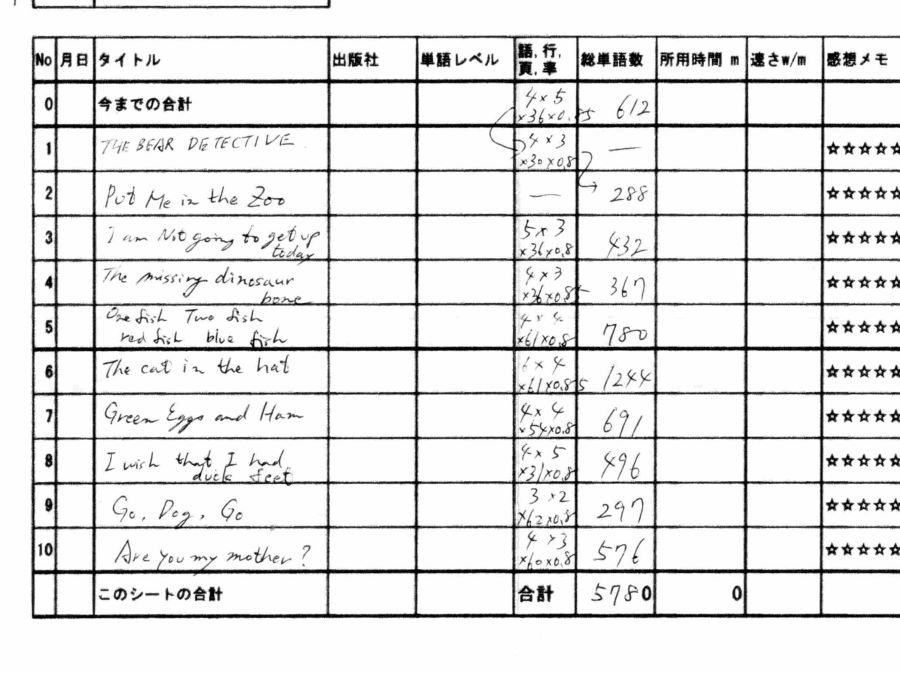 No 月日 タイトル 出版社 単語レベル 語,行,頁,率 総単語数 所用時間 m 速さw/m 感想メモ
0 今までの合計 4×5 ×36×0.85 612
1 THE BEAR DETECTIVE 4×3 ×30×0.8 — ☆☆☆☆☆
2 Put Me in the Zoo — 288 ☆☆☆☆☆
3 I am Not going to get up today 5×3 ×36×0.8 432 ☆☆☆☆☆
4 The missing dinosaur bone 4×3 ×36×0.85 367 ☆☆☆☆☆
5 One fish Two fish red fish blue fish 4×4 ×61×0.8 780 ☆☆☆☆☆
6 The cat in the hat 6×4 ×61×0.85 1244 ☆☆☆☆☆
7 Green Eggs and Ham 4×4 ×54×0.8 691 ☆☆☆☆☆
8 I wish that I had duck feet 4×5 ×31×0.8 496 ☆☆☆☆☆
9 Go, Dog, Go 3×2 ×62×0.8 297 ☆☆☆☆☆
10 Are you my mother? 4×3 ×60×0.8 576 ☆☆☆☆☆
このシートの合計 合計 5780 0